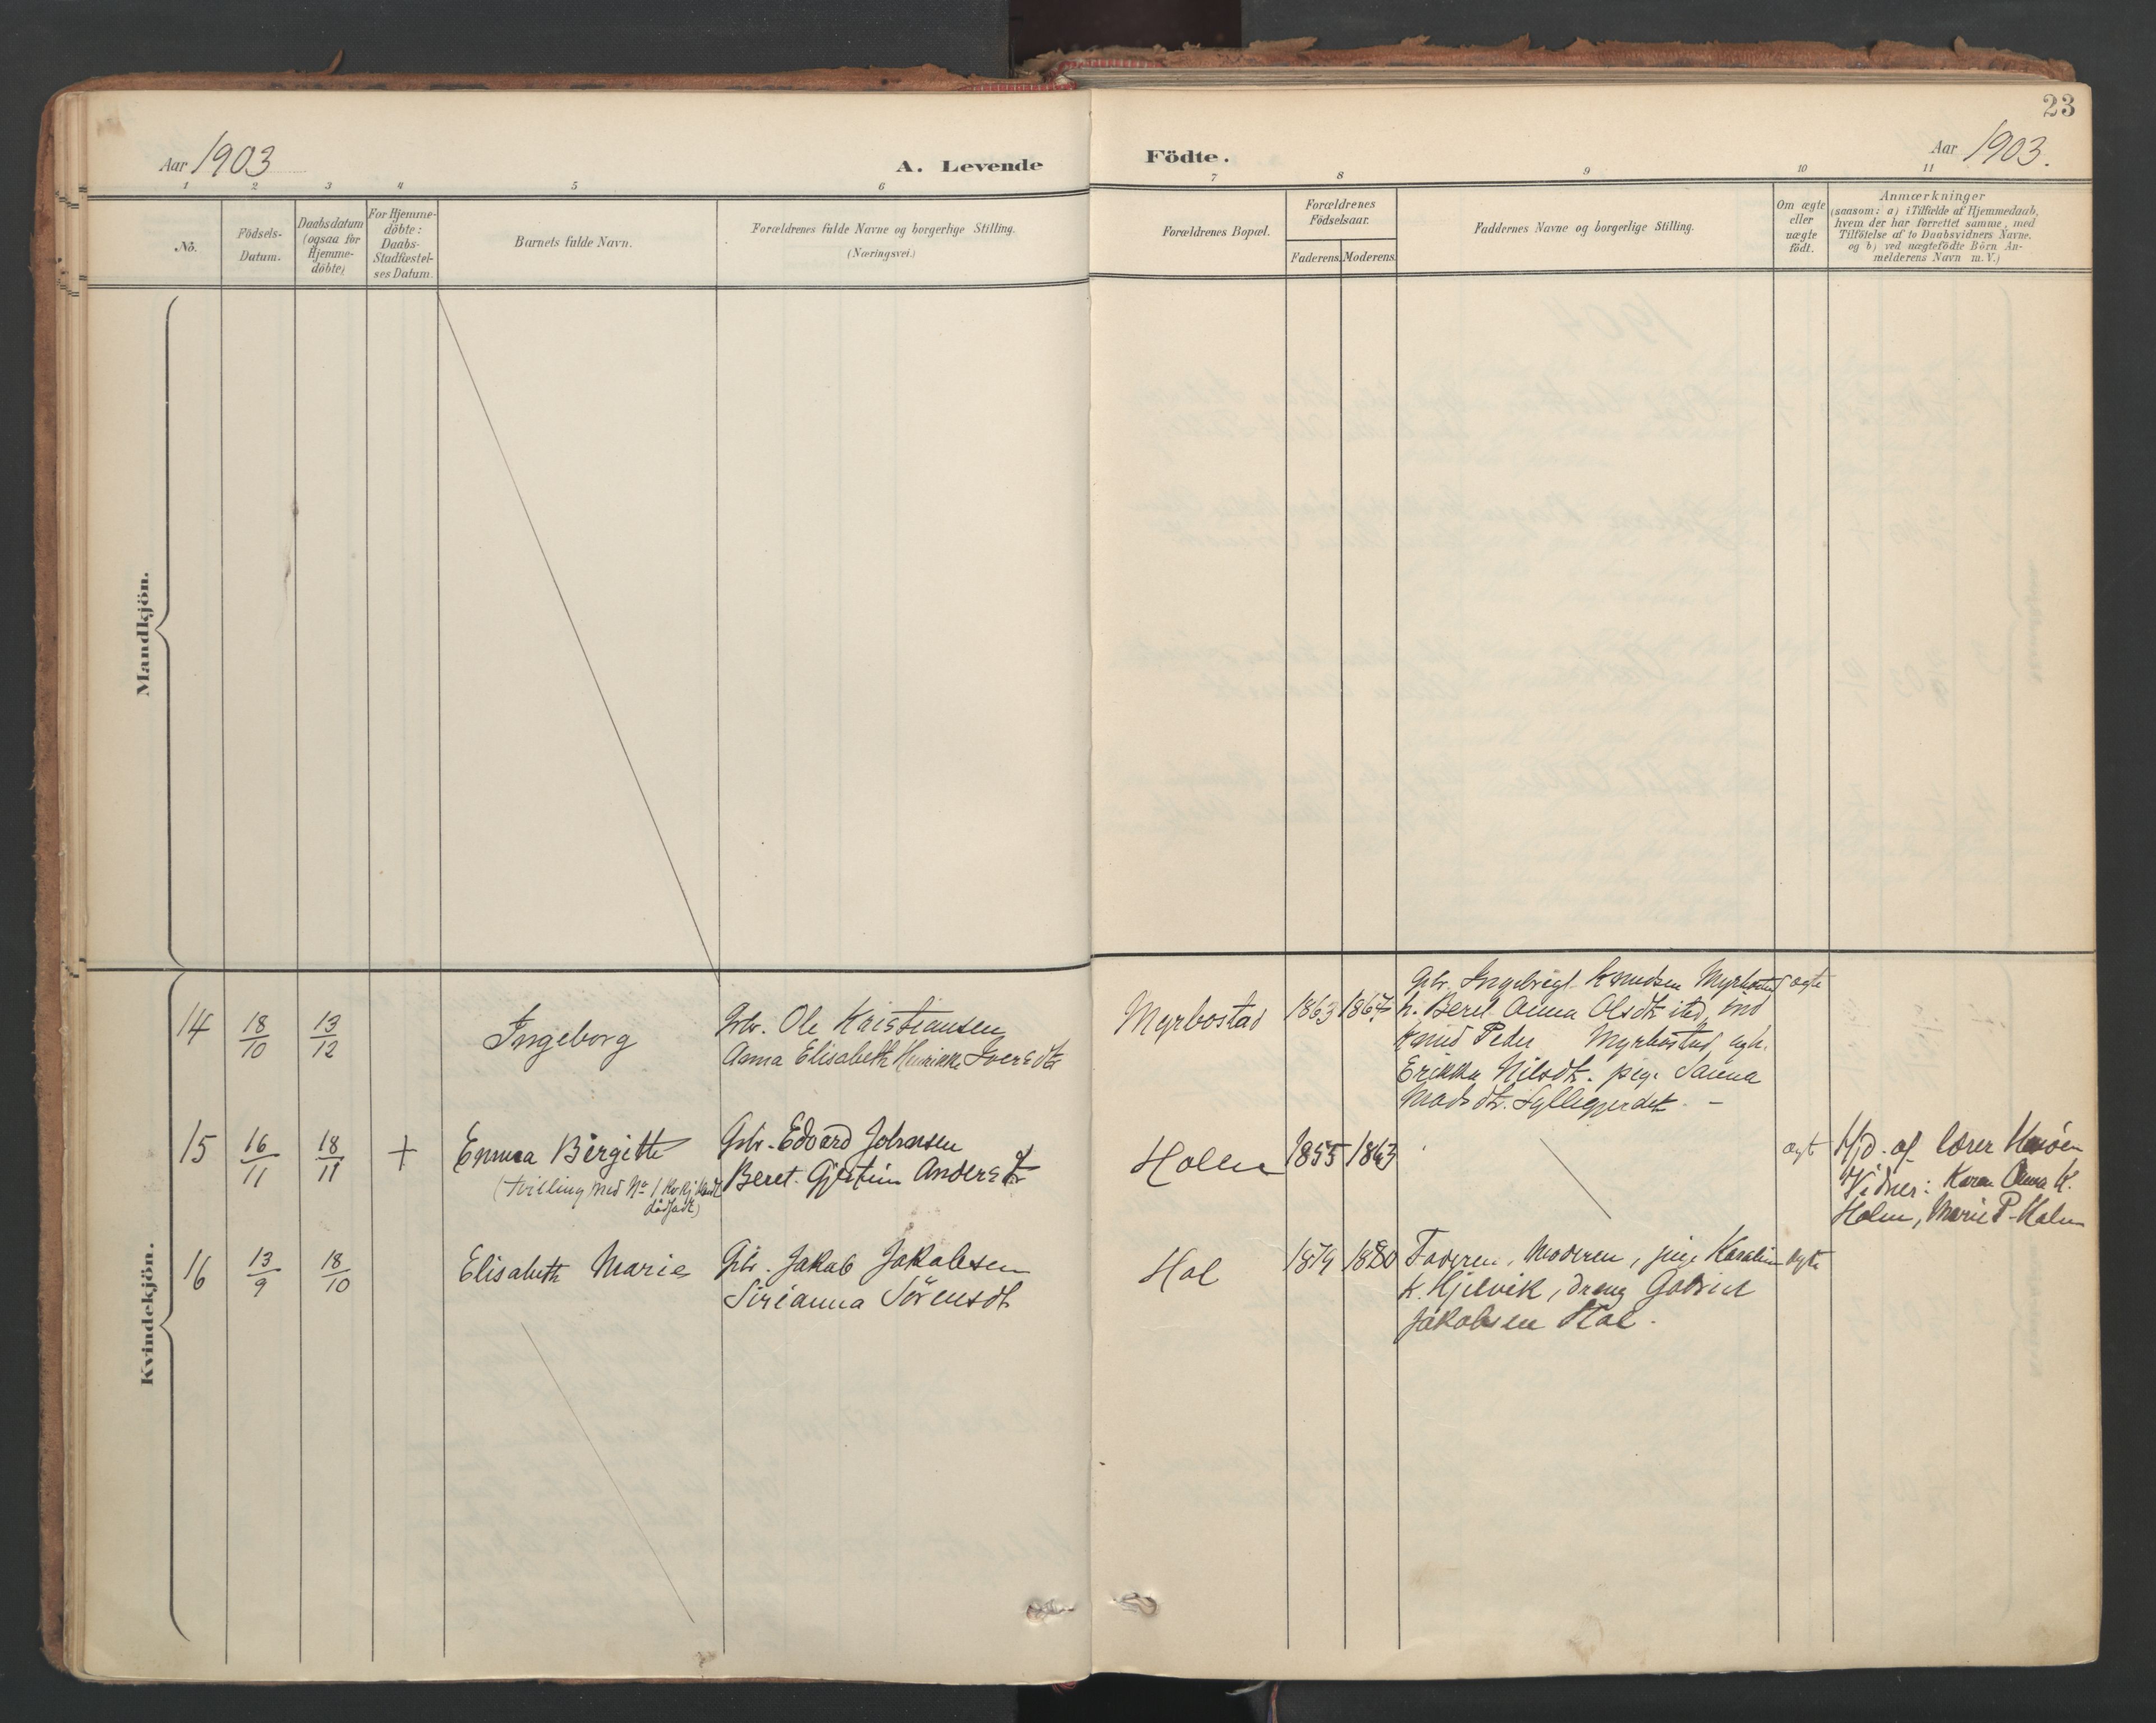 23
Aar 1903
A. Levende
Födte.
Aar 1903.
1 2 3 4 5 6 7 8 9 10 11
No.
Födsels-
Datum.
Daabsdatum
(ogsaa for
Hjemme-
döbte)
For Hjemme-
döbte:
Daabs-
Stadfæstel-
ses Datum.
Barnets fulde Navn.
Forældrenes fulde Navne og borgerlige Stilling.
(Næringsvei.)
Forældrenes Bopæl.
Forældrenes
Födselsaar.
Faderens. Moderens.
Faddernes Navne og borgerlige Stilling.
Om ægte
eller
uægte
födt.
Anmærkninger
(saasom: a) i Tilfælde af Hjemmedaab,
hvem der har forrettet samme, med
Tilföielse af to Daabsvidners Navne.
og b) ved uægtefödte Börn An-
melderens Navn m. V.)
Mandkjön.
Kvindekjön.
14 18/10 13/12
Ingeborg
Gbr. Ole Kristiansen
Anna Elisabeth Henrikke Iversdtr
Myrbostad 1863 1867
Gbr. Ingebrigt Knudsen Myrbostad
h. Beret Anna Olsdtr itd,
Knud Peder Myrbostad,
Erikka Nilsdtr. pige Sanna
Madsdtr. Syllegjerdet. -
ægte
15 16/11 18/11 +
Emma Birgitte
(tvilling med No 1 dødfødt)
Gbr. Edvard Johansen
Beret Gjertine Andersdtr
Holm 1855 1863
ægt
Hjd. af lærer
Vidner: Karen Anna K.
Holm, Marie P. Holm
16 13/9 18/10
Elisabeth Marie
Gbr. Jakob Jakobsen
Sirianna Sörensdtr
Hol 1879 1880
Faderen, Moderen, pige Karoline
K. Hjelvik, dreng Gabriel
Jakobsen Hol.
ægte